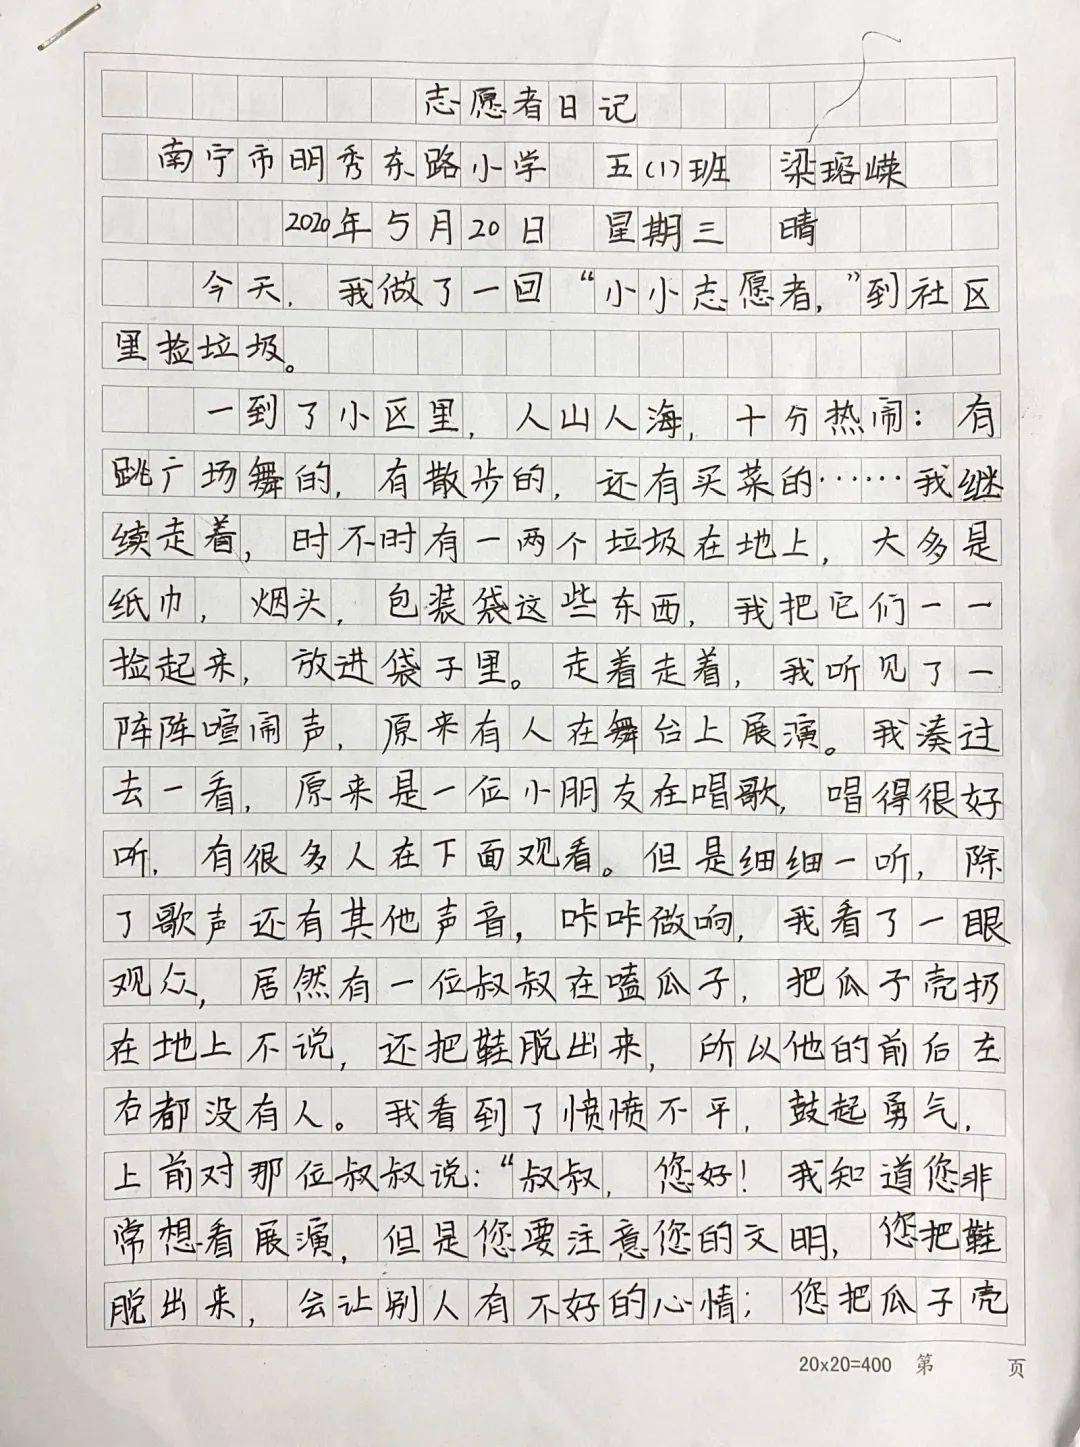 志愿者日记
南宁市明秀东路小学 五(1)班 梁瑢嵘
2020年5月20日 星期三 晴
今天，我做了一回“小小志愿者，”到社区
里捡垃圾。
一到了小区里，人山人海，十分热闹：有
跳广场舞的，有散步的，还有买菜的……我继
续走着，时不时有一两个垃圾在地上，大多是
纸巾，烟头，包装袋这些东西，我把它们一一
捡起来，放进袋子里。走着走着，我听见了一
阵阵喧闹声，原来有人在舞台上展演。我凑过
去一看，原来是一位小朋友在唱歌，唱得很好
听，有很多人在下面观看。但是细细一听，除
了歌声还有其他声音，咔咔做响，我看了一眼
观众，居然有一位叔叔在嗑瓜子，把瓜子壳扔
在地上不说，还把鞋脱出来，所以他的前后左
右都没有人。我看到了愤愤不平，鼓起勇气，
上前对那位叔叔说：“叔叔，您好！我知道您非
常想看展演，但是您要注意您的文明，您把鞋
脱出来，会让别人有不好的心情；您把瓜子壳
20x20=400 第 页